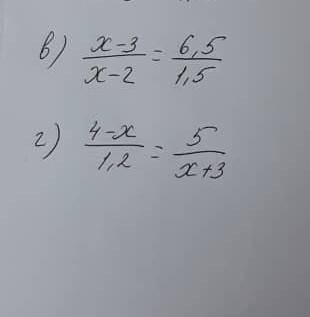 в) (x-3)/(x-2) = 6,5/1,5
г) (4-x)/1,2 = 5/(x+3)